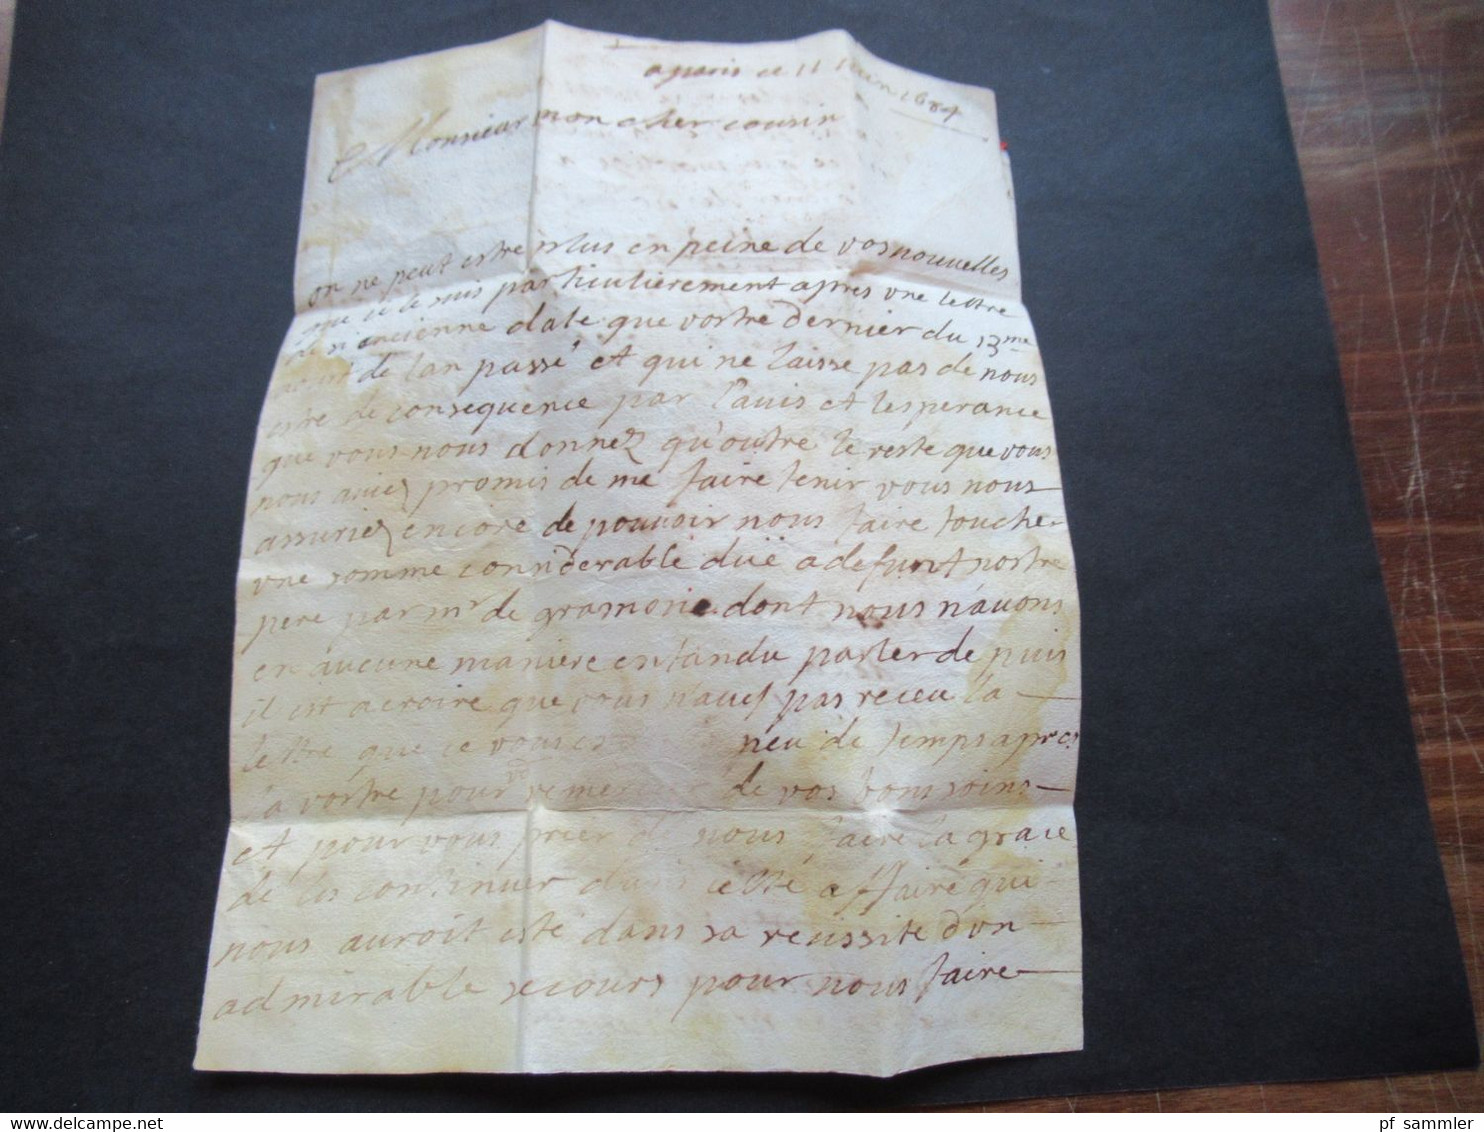 a paris ce 11 Juin 1684
Monsieur mon cher cousin
on ne peut estre plus en peine de vos nouvelles
que je le suis particulierement apres une lettre
de si ancienne date que vostre dernier du 13me
aoust de lan passé et qui ne laisse pas de nous
estre de consequence par l'auis et lesperance
que vous nous donnez qu'outre le reste que vous
nous auiez promis de me faire tenir vous nous
assuriez encore de pouuoir nous faire toucher
une somme considerable duë a defunt nostre
pere par mr de gramont dont nous n'auons
en aucune maniere entandu parler de puis
il est a croire que vous n'auez pas receu la
lettre que je vous es peu de temps apres
la vostre pour vo remercier de vos bons soins
et pour vous prier de nous faire la grace
de les continuer dans cette affaire qui
nous auroit esté dans sa reussite d'un
admirable secours pour nous faire
pf sammler